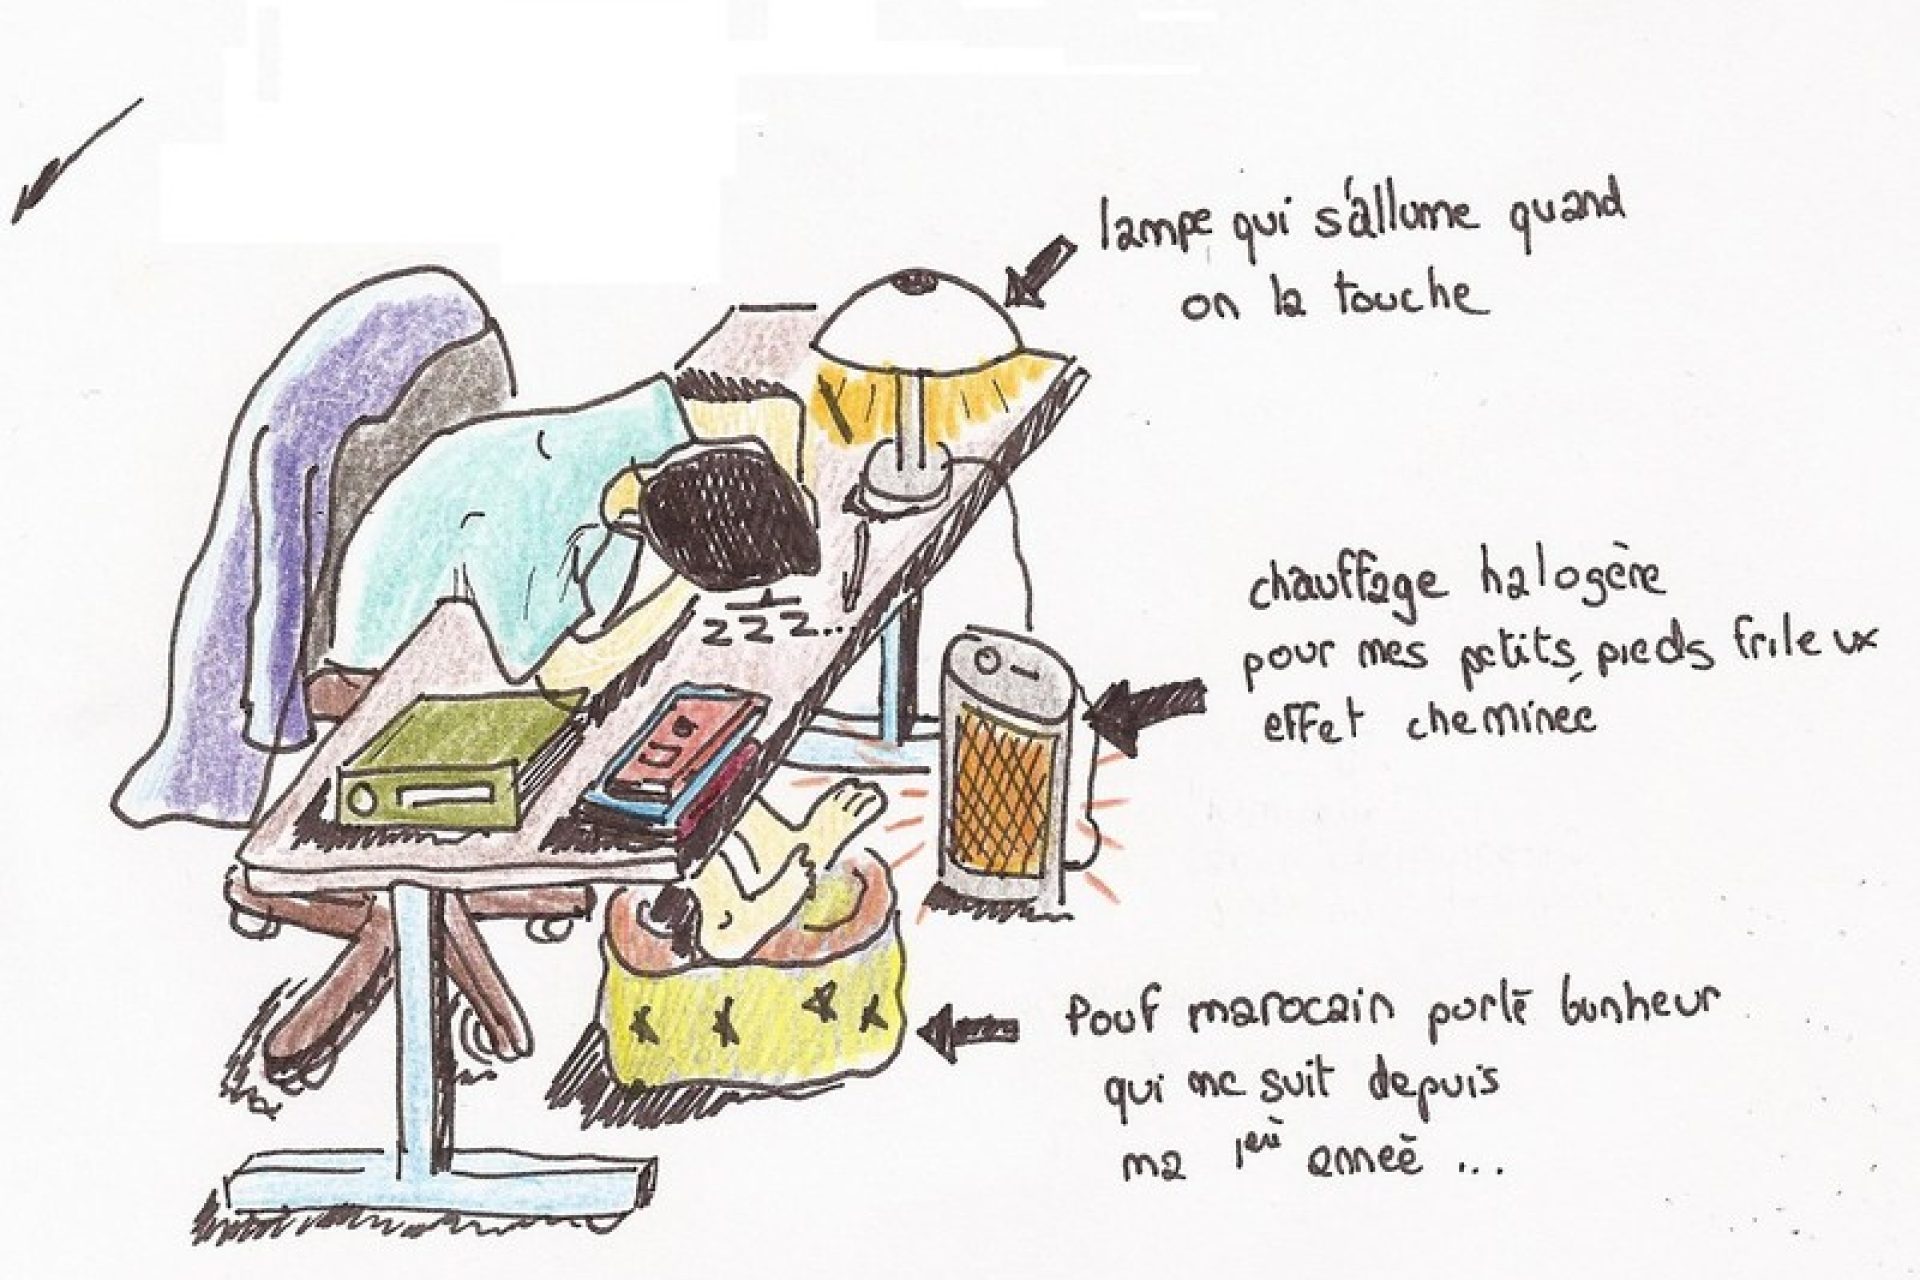 lampe qui s'allume quand
on la touche
chauffage halogère
pour mes petits pieds frileux
effet cheminée
zzz...
Pouf marocain porte bonheur
qui me suit depuis
ma 1ère année ...